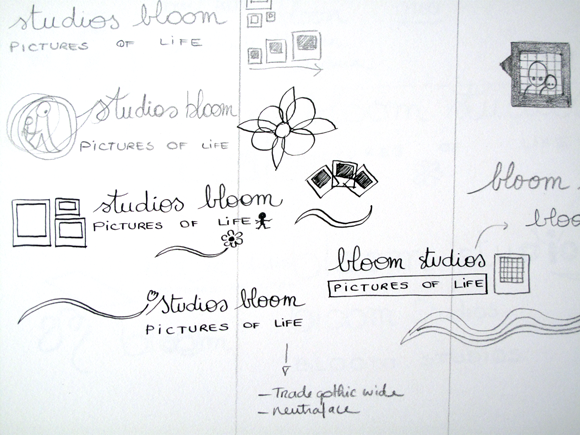 studios bloom
PICTURES OF LIFE
studios bloom
PICTURES OF LIFE
studios bloom
PICTURES OF LIFE
studios bloom
PICTURES OF LIFE
bloom
bloo
bloom studios
PICTURES OF LIFE
- Trade gothic wide
- neutraface